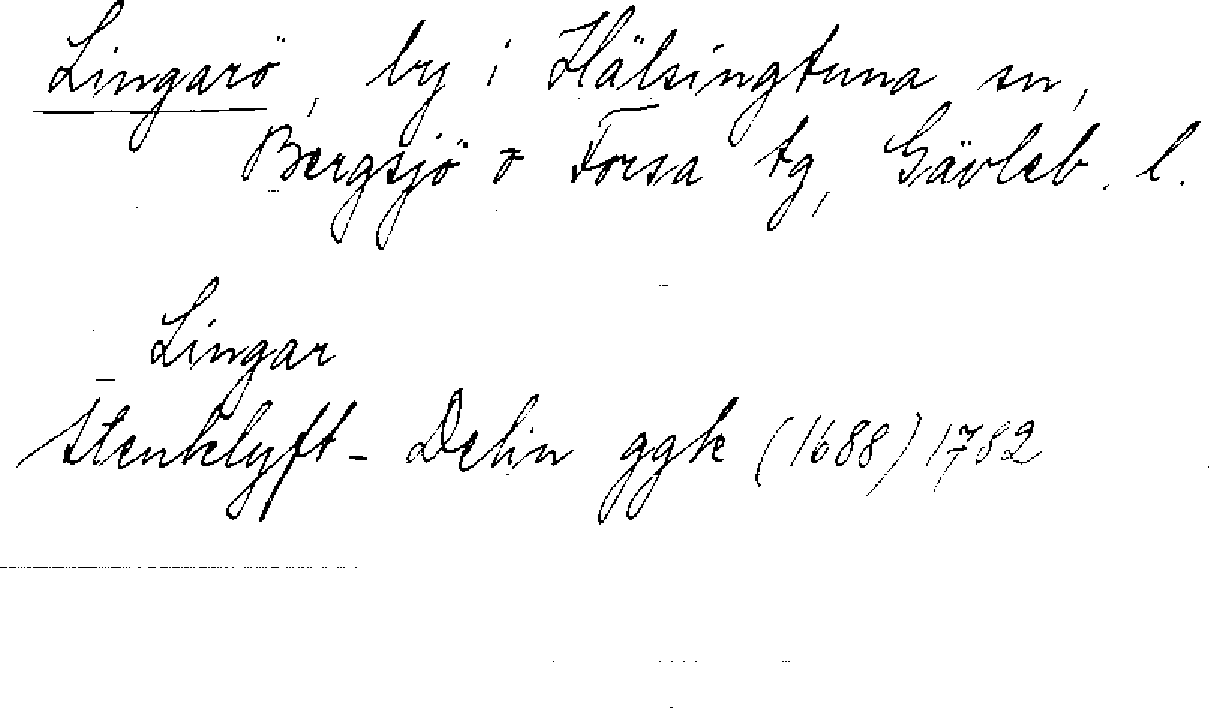 Lingarö, by i Hälsingtuna sn,
Bergsjö o Forsa tg, Gävleb. l.
Lingar
Stenklyft - Delin ggk (1688) 1782